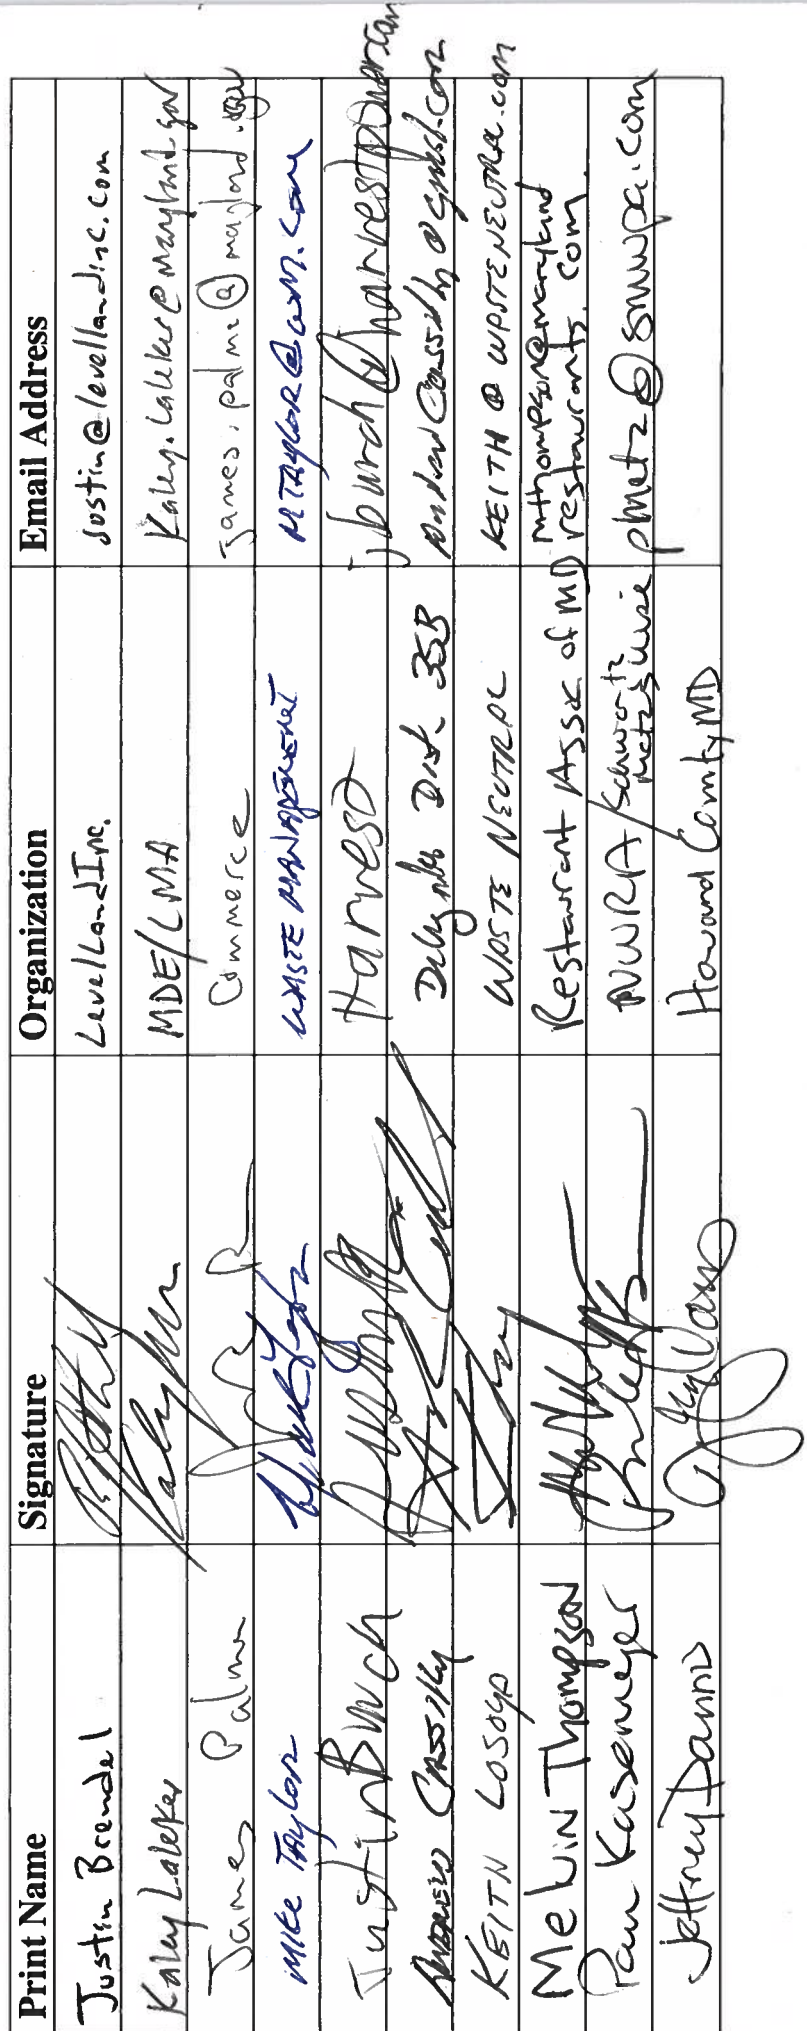 Print Name Signature Organization Email Address
Justin Brendel Level Land Inc. justin@levellandinc.com
Kaley Laleker MDE/LMA Kaley.Laleker@maryland.gov
James Palma Commerce james.palma@maryland.gov
MIKE TAYLOR WASTE MANAGEMENT MTAYLOR@WM.COM
Justin Burch Harvest
ANDREW CASSILLY Delegate Dist. 35B
KEITH LOSOYA WASTE NEUTRAL KEITH@WASTENEUTRAL.COM
Melvin Thompson Restaurant Assc. of MD mthompson@maryland
restaurants.com
Pam Kasemeyer NWRA/Schwartz pmetz@smwpa.com
Metz & Wise
Jeffrey Dannis Howard County MD